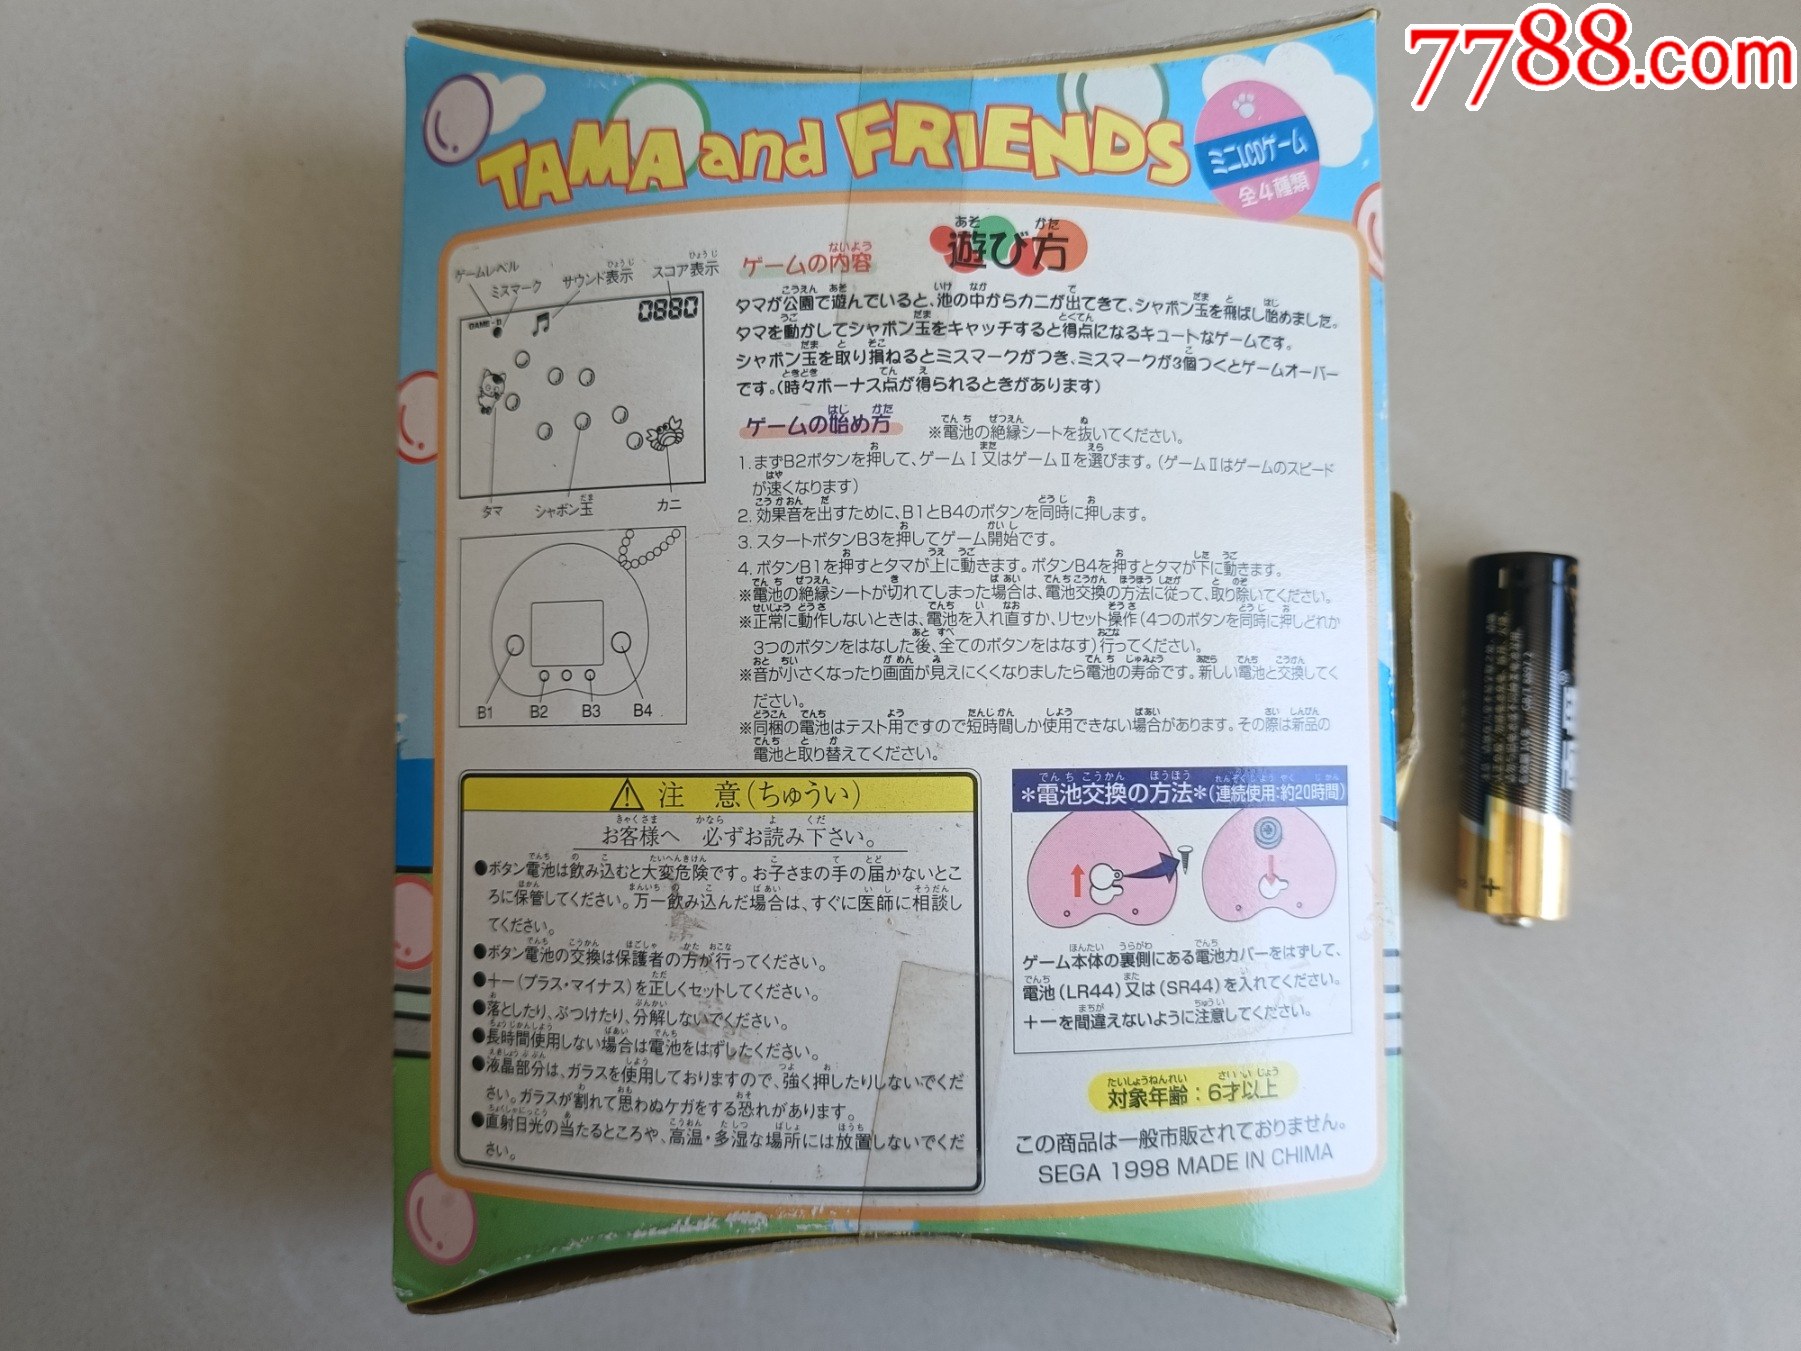 7788.com
TAMA and FRIENDS
ミニLCDゲーム
全4種類
遊び方
ゲームレベル
ミスマーク
サウンド表示
スコア表示
0880
タマ
シャボン玉
カニ
B1
B2
B3
B4
ゲームの内容
タマが公園で遊んでいると、池の中からカニが出てきて、シャボン玉を飛ばし始めました。
タマを動かしてシャボン玉をキャッチすると得点になるキュートなゲームです。
シャボン玉を取り損ねるとミスマークがつき、ミスマークが3個つくとゲームオーバー
です。(時々ボーナス点が得られるときがあります)
ゲームの始め方
※電池の絶縁シートを抜いてください。
1. まずB2ボタンを押して、ゲームⅠ又はゲームⅡを選びます。(ゲームⅡはゲームのスピード
が速くなります)
2. 効果音を出すために、B1とB4のボタンを同時に押します。
3. スタートボタンB3を押してゲーム開始です。
4. ボタンB1を押すとタマが上に動きます。ボタンB4を押すとタマが下に動きます。
※電池の絶縁シートが切れてしまった場合は、電池交換の方法に従って、取り除いてください。
※正常に動作しないときは、電池を入れ直すか、リセット操作(4つのボタンを同時に押しどれか
3つのボタンをはなした後、全てのボタンをはなす)行ってください。
※音が小さくなったり画面が見えにくくなりましたら電池の寿命です。新しい電池と交換してく
ださい。
※同梱の電池はテスト用ですので短時間しか使用できない場合があります。その際は新品の
電池と取り替えてください。
注 意(ちゅうい)
お客様へ 必ずお読み下さい。
●ボタン電池は飲み込むと大変危険です。お子さまの手の届かないとこ
ろに保管してください。万一飲み込んだ場合は、すぐに医師に相談し
てください。
●ボタン電池の交換は保護者の方が行ってください。
●+−(プラス・マイナス)を正しくセットしてください。
●落としたり、ぶつけたり、分解しないでください。
●長時間使用しない場合は電池をはずしたください。
●液晶部分は、ガラスを使用しておりますので、強く押したりしないでくだ
さい。ガラスが割れて思わぬケガをする恐れがあります。
●直射日光の当たるところや、高温・多湿な場所には放置しないでくだ
さい。
*電池交換の方法*(連続使用:約20時間)
ゲーム本体の裏側にある電池カバーをはずして、
電池(LR44)又は(SR44)を入れてください。
+−を間違えないように注意してください。
対象年齢:6才以上
この商品は一般市販されておりません。
SEGA 1998 MADE IN CHIMA